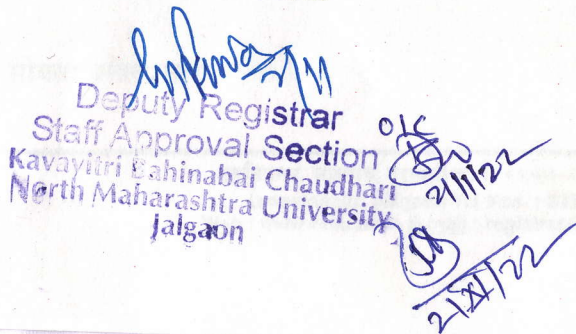 Deputy Registrar
Staff Approval Section
Kavayitri Bahinabai Chaudhari
North Maharashtra University
Jalgaon
2/11/22
2/XI/22